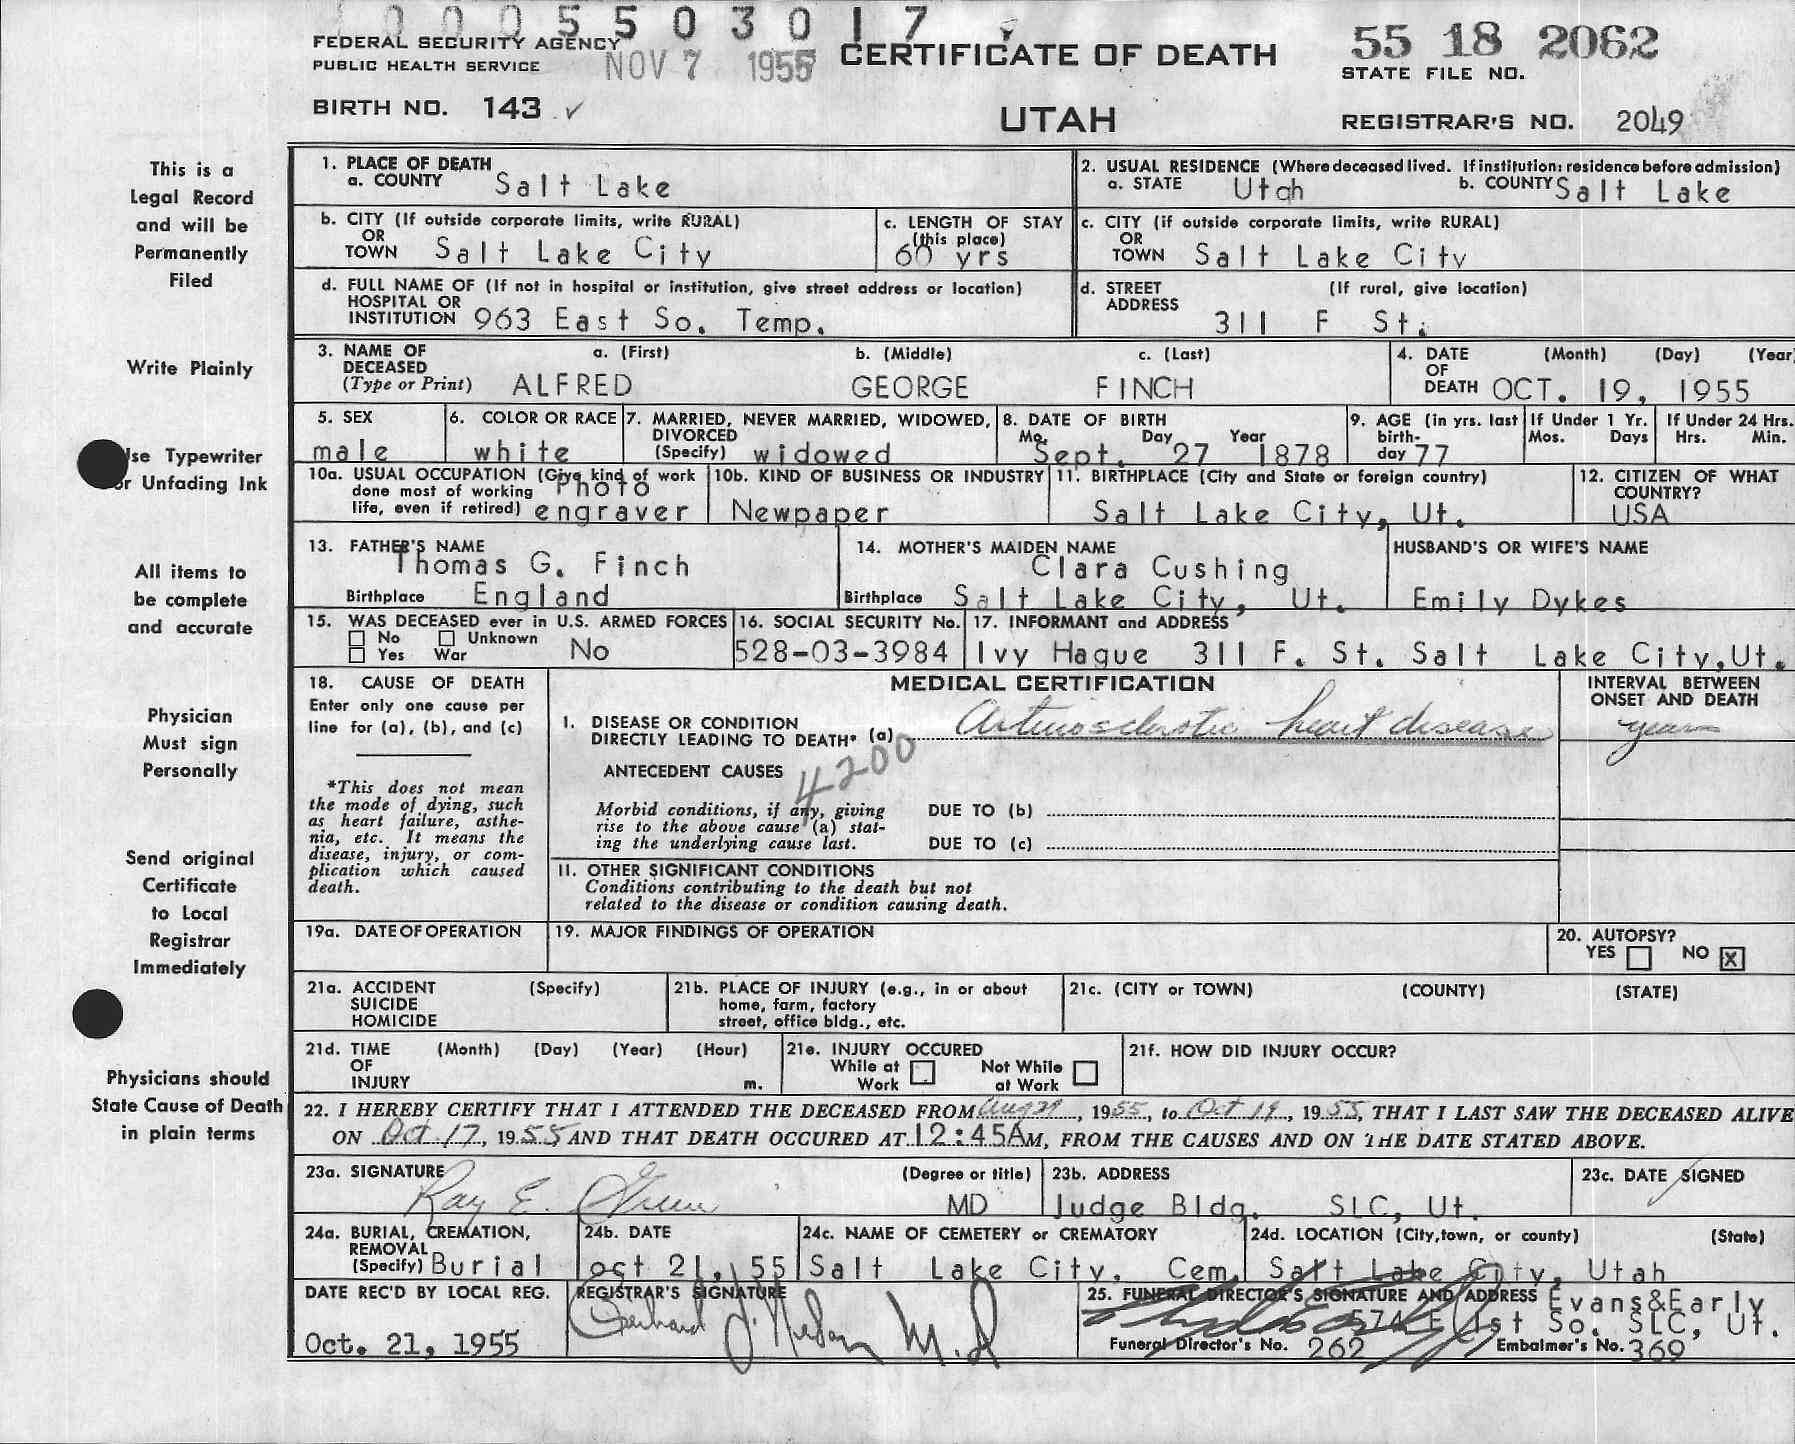 0005503017
FEDERAL SECURITY AGENCY
PUBLIC HEALTH SERVICE
NOV 7 1955
CERTIFICATE OF DEATH
55 18 2062
STATE FILE NO.
BIRTH NO. 143 ✓
UTAH
REGISTRAR'S NO. 2049
This is a
Legal Record
and will be
Permanently
Filed
Write Plainly
Use Typewriter
or Unfading Ink
All items to
be complete
and accurate
Physician
Must sign
Personally
Send original
Certificate
to Local
Registrar
Immediately
Physicians should
State Cause of Death
in plain terms
1. PLACE OF DEATH
a. COUNTY Salt Lake
2. USUAL RESIDENCE (Where deceased lived. If institution: residence before admission)
a. STATE Utah b. COUNTY Salt Lake
b. CITY (If outside corporate limits, write RURAL)
OR
TOWN Salt Lake City
c. LENGTH OF STAY
(this place)
60 yrs
c. CITY (if outside corporate limits, write RURAL)
OR
TOWN Salt Lake City
d. FULL NAME OF (If not in hospital or institution, give street address or location)
HOSPITAL OR
INSTITUTION 963 East So. Temp.
d. STREET (If rural, give location)
ADDRESS
311 F St.
3. NAME OF a. (First) b. (Middle) c. (Last)
DECEASED
(Type or Print) ALFRED GEORGE FINCH
4. DATE (Month) (Day) (Year)
OF
DEATH OCT. 19, 1955
5. SEX
male
6. COLOR OR RACE
white
7. MARRIED, NEVER MARRIED, WIDOWED,
DIVORCED
(Specify) widowed
8. DATE OF BIRTH
Mo. Day Year
Sept. 27 1878
9. AGE (in yrs. last
birth-
day 77
If Under 1 Yr.
Mos. Days
If Under 24 Hrs.
Hrs. Min.
10a. USUAL OCCUPATION (Give kind of work
done most of working Photo
life, even if retired) engraver
10b. KIND OF BUSINESS OR INDUSTRY
Newpaper
11. BIRTHPLACE (City and State or foreign country)
Salt Lake City, Ut.
12. CITIZEN OF WHAT
COUNTRY?
USA
13. FATHER'S NAME
Thomas G. Finch
Birthplace England
14. MOTHER'S MAIDEN NAME
Clara Cushing
Birthplace Salt Lake City, Ut.
HUSBAND'S OR WIFE'S NAME
Emily Dykes
15. WAS DECEASED ever in U.S. ARMED FORCES
No Unknown
Yes War No
16. SOCIAL SECURITY No.
528-03-3984
17. INFORMANT and ADDRESS
Ivy Hague 311 F. St. Salt Lake City,Ut.
18. CAUSE OF DEATH
Enter only one cause per
line for (a), (b), and (c)
*This does not mean
the mode of dying, such
as heart failure, asthe-
nia, etc. It means the
disease, injury, or com-
plication which caused
death.
MEDICAL CERTIFICATION
INTERVAL BETWEEN
ONSET AND DEATH
I. DISEASE OR CONDITION
DIRECTLY LEADING TO DEATH* (a) Arteriosclerotic heart disease
years
4200
ANTECEDENT CAUSES
Morbid conditions, if any, giving
rise to the above cause (a) stat-
ing the underlying cause last.
DUE TO (b)
DUE TO (c)
II. OTHER SIGNIFICANT CONDITIONS
Conditions contributing to the death but not
related to the disease or condition causing death.
19a. DATE OF OPERATION
19. MAJOR FINDINGS OF OPERATION
20. AUTOPSY?
YES NO X
21a. ACCIDENT (Specify)
SUICIDE
HOMICIDE
21b. PLACE OF INJURY (e.g., in or about
home, farm, factory
street, office bldg., etc.
21c. (CITY or TOWN) (COUNTY) (STATE)
21d. TIME (Month) (Day) (Year) (Hour)
OF
INJURY m.
21e. INJURY OCCURED
While at Work
Not While at Work
21f. HOW DID INJURY OCCUR?
22. I HEREBY CERTIFY THAT I ATTENDED THE DECEASED FROM Aug 29, 1955, to Oct 19, 1955, THAT I LAST SAW THE DECEASED ALIVE
ON Oct 17, 1955 AND THAT DEATH OCCURED AT 12:45AM, FROM THE CAUSES AND ON THE DATE STATED ABOVE.
23a. SIGNATURE (Degree or title)
Ray E. MD
23b. ADDRESS
Judge Bldg. SLC, Ut.
23c. DATE SIGNED
24a. BURIAL, CREMATION,
REMOVAL
(Specify) Burial
24b. DATE
oct 21, 55
24c. NAME OF CEMETERY or CREMATORY
Salt Lake City, Cem
24d. LOCATION (City,town, or county) (State)
Salt Lake City, Utah
DATE REC'D BY LOCAL REG.
Oct. 21, 1955
REGISTRAR'S SIGNATURE
M.D
25. FUNERAL DIRECTOR'S SIGNATURE AND ADDRESS Evans&Early
574 E 1st So. SLC, Ut.
Funeral Director's No. 262 Embalmer's No. 369